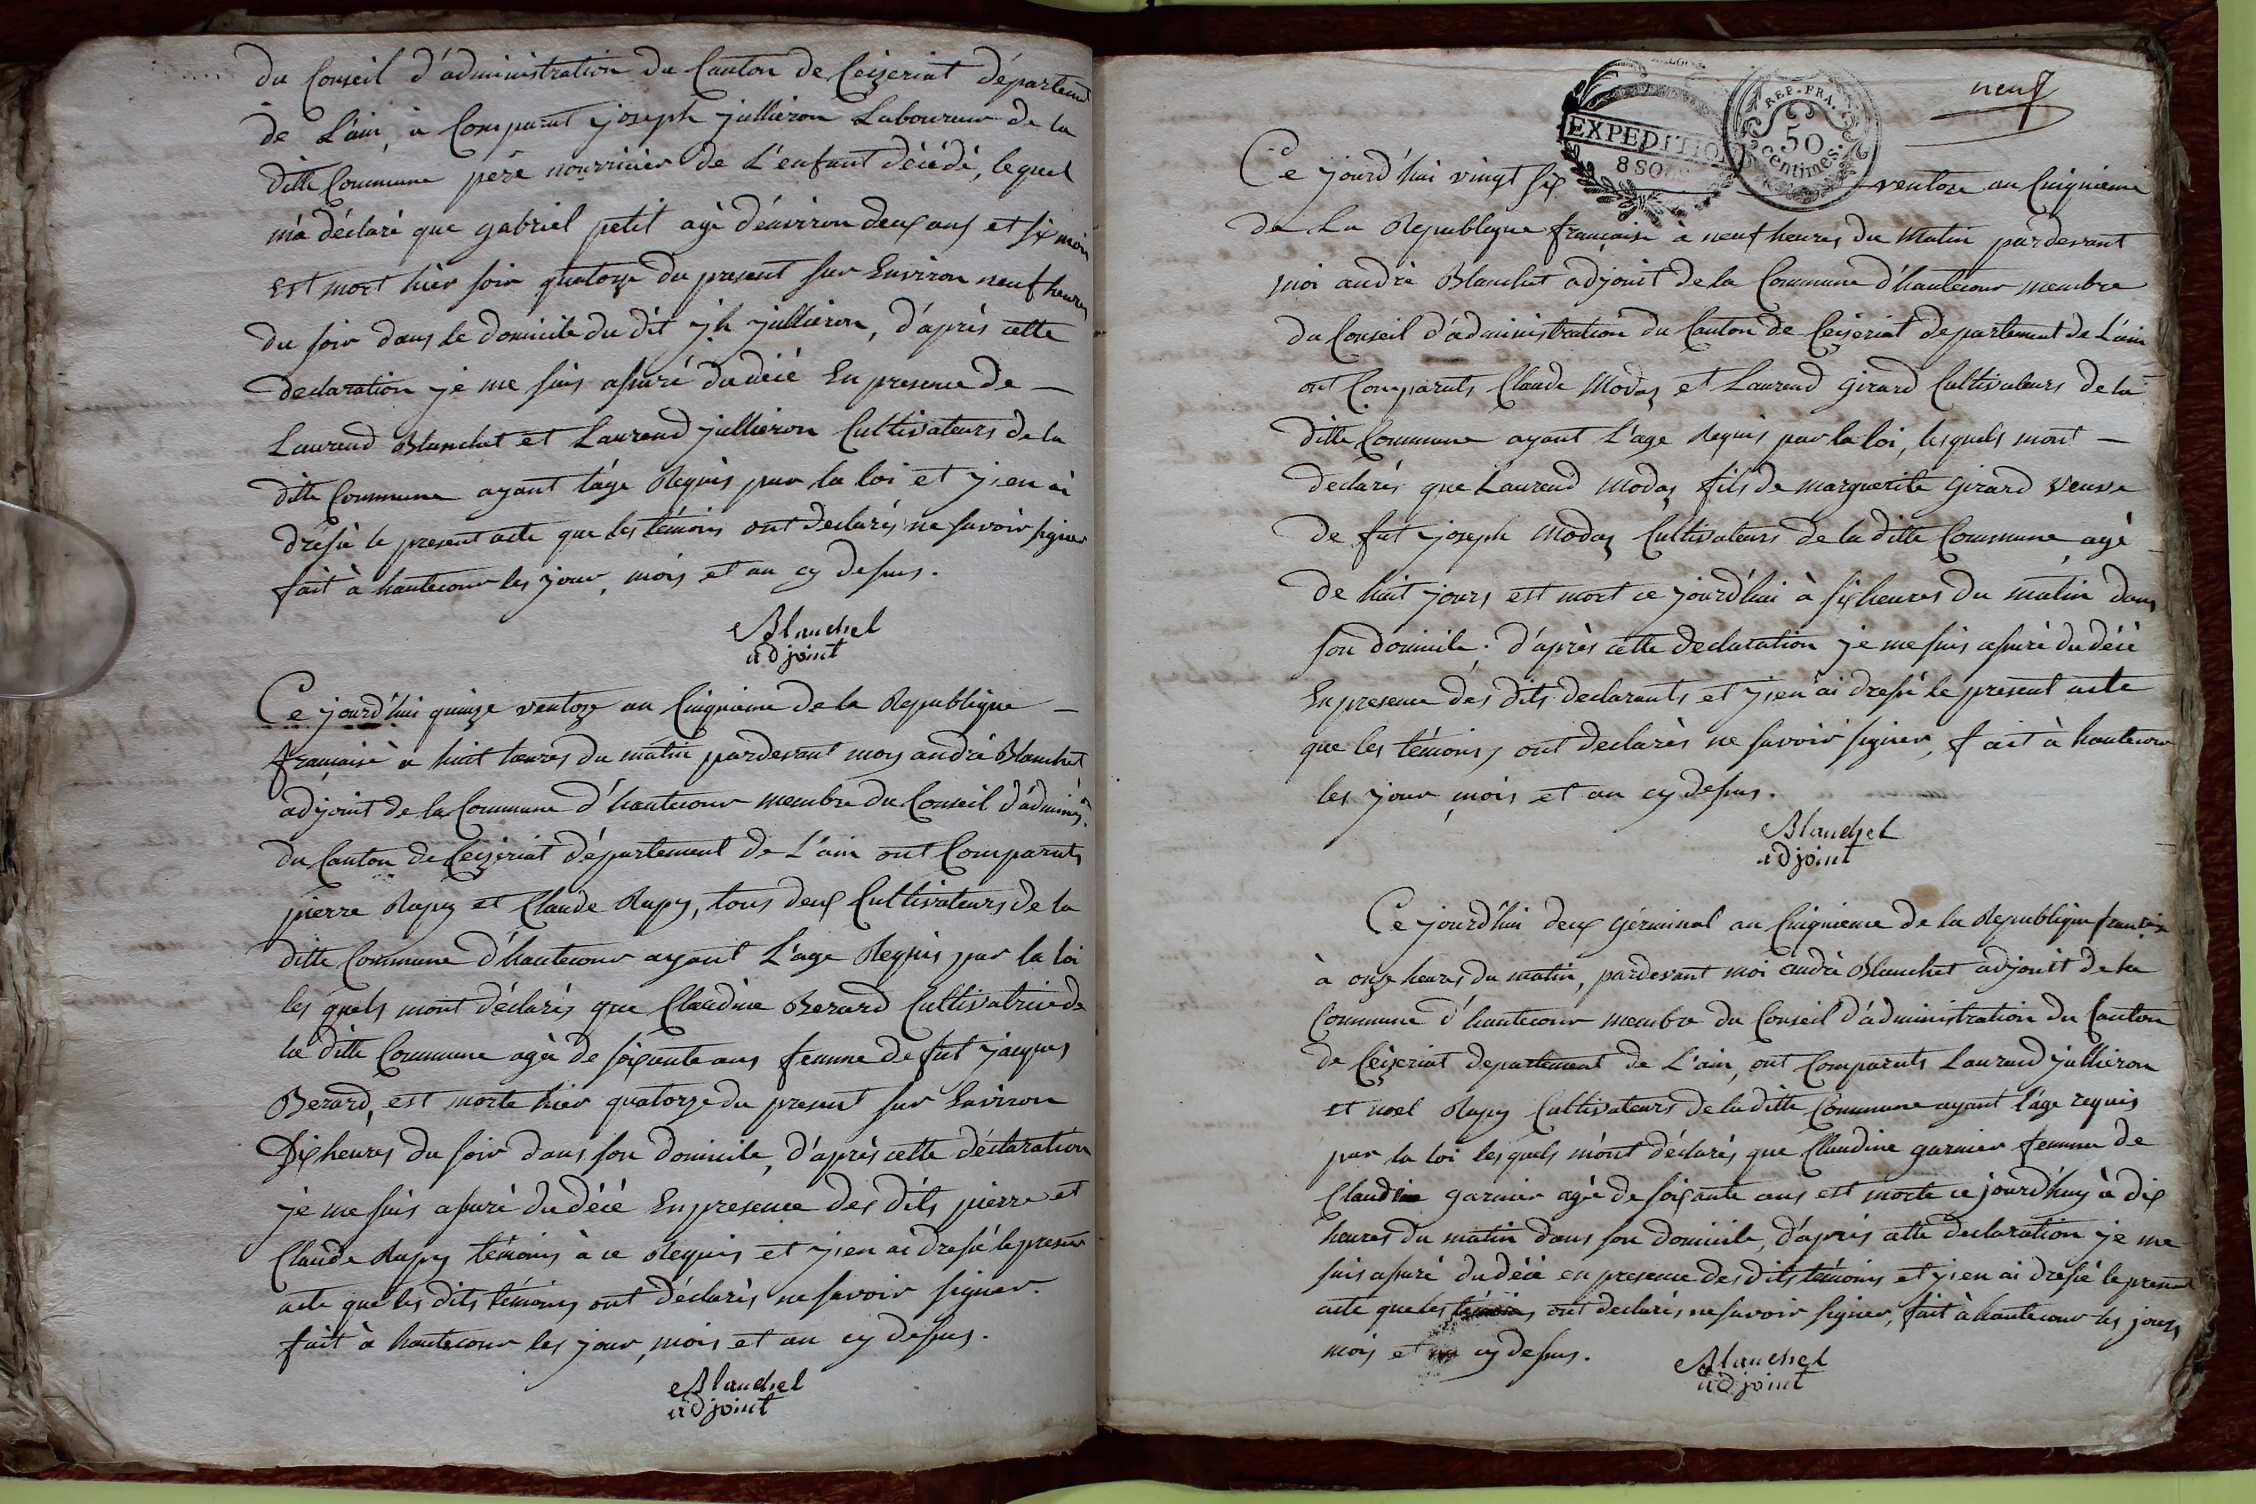 du Conseil d'administration du Canton de Ceizeriat départem
de L'ain, a Comparut joseph jullieron Laboureur de la
ditte Commune père nourricier de L'enfant décédé, lequel
m'a déclaré que gabriel petit agé d'environ deux ans et six mois
est mort hier soir quatorze du present sur Environ neuf heures
du soir dans le domicile du dit jh. jullieron, d'après cette
declaration je me suis assuré du décé En presence de —
Laurend Blanchet et Laurend jullieron Cultivateurs de la
ditte Commune ayant l'âge Requis par la loi et j'en ai
dressé le present acte que les témoins ont declarés ne savoir signer
fait à hautecour les jour, mois et an cy dessus.
Blanchet
adjoint
Ce jourd'hui quinze ventoze an Cinquieme de la Republique —
française a huit heures du matin pardevant moy andré Blanchet
adjoint de la Commune d'hautecour membre du Conseil d'admin.
du Canton de Ceizeriat département de L'ain ont Comparuts
pierre Rapy et Claude Rapy, tous deux Cultivateurs de la
ditte Commune d'hautecour ayant L'age Requis par la loi
les quels mont déclarés que Claudine Berard Cultivatrice de
la ditte Commune agée de soixante ans femme de fut jacques
Berard, est morte hier quatorze du present sur Environ
Dix heures du soir dans son domicile, d'après cette déclaration
je me suis assuré du décé En presence des dits pierre et
Claude Rapy témoins à ce Requis et j'en ai dressé le present
acte que les dits témoins ont déclarés ne savoir signer.
fait à hautecour les jour, mois et an cy dessus.
Blanchet
adjoint
neuf
EXPEDITION
8 SO
REP. FRA.
50
centimes.
Ce jourd'hui vingt six ventoze an Cinquieme
de La Republique française à neuf heures du Matin pardevant
moi andré Blanchet adjoint de la Commune d'hautecour membre
du Conseil d'administration du Canton de Ceizeriat departement de L'ain
ont Comparuts Claude Modaz et Laurend Girard Cultivateurs de la
ditte Commune ayant L'age Requis par la loi, lesquels mont —
declarés que Laurend Modaz fils de marguerite Girard veuve
de fut joseph Modaz Cultivateurs de la ditte Commune agé —
de huit jours est mort ce jourd'hui à six heures du matin dans
son domicile. d'après cette declaration je me suis assuré du décé
En presence des dits declarants et j'en ai dressé le present acte
que les témoins ont declarés ne savoir signer, fait à hautecour
les jour mois et an cy dessus.
Blanchet
adjoint
Ce jourd'hui deux Gérminal an Cinquieme de la Republique française
à onze heures du matin, pardevant moi andré Blanchet adjoint de la
Commune d'hautecour membre du Conseil d'administration du Canton
de Ceizeriat departement de L'ain, ont Comparuts Laurend jullieron
et noel Rapy Cultivateurs de la ditte Commune ayant l'age requis
par la loi les quels m'ont déclarés que Claudine garnier femme de
Claude garnier agée de soixante ans est morte ce jourd'huy à dix
heures du matin dans son domicile, d'après cette declaration je me
suis assuré du décé en presence des dits témoins et j'en ai dressé le present
acte que les témoins ont declarés ne savoir signer, fait à hautecour les jours
mois et an cy dessus.
Blanchet
adjoint